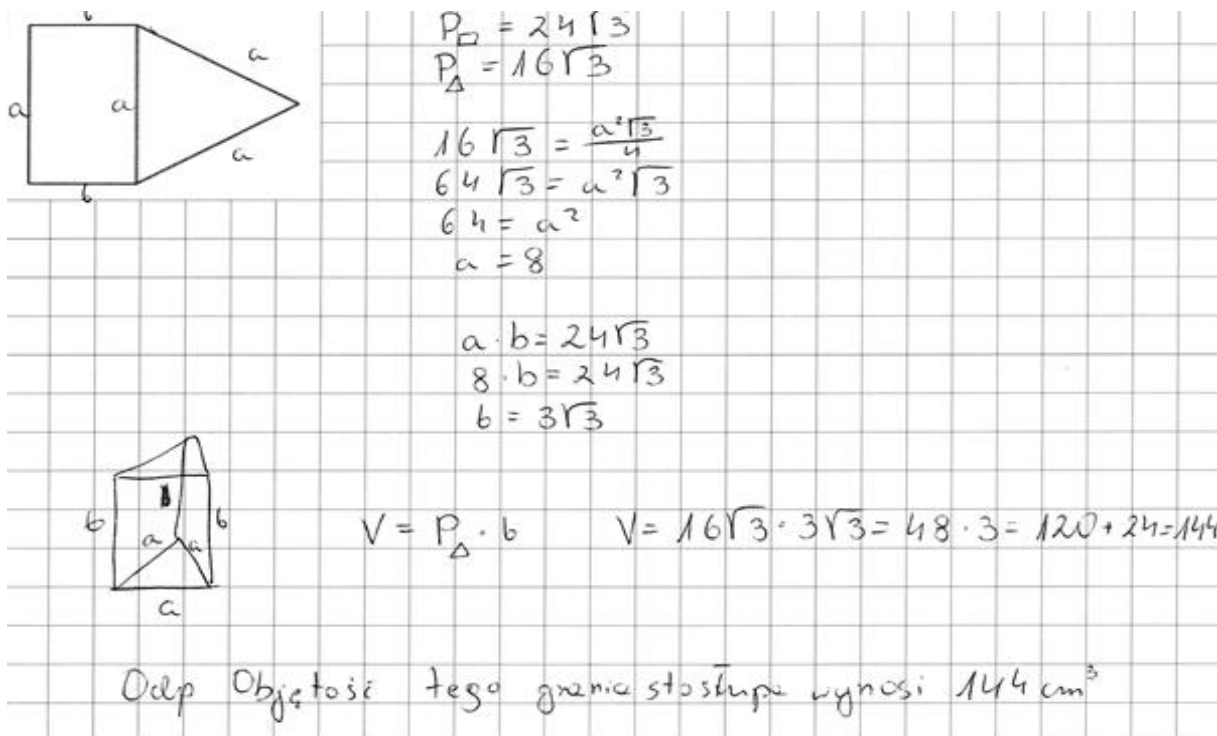 b
a
a
a
a
b
P▭ = 24√3
P△ = 16√3
16√3 = a²√3/4
64√3 = a²√3
64 = a²
a = 8
a · b = 24√3
8 · b = 24√3
b = 3√3
b
b
a
a
a
V = P△ · b V = 16√3 · 3√3 = 48 · 3 = 120 + 24 = 144
Odp Objętość tego graniastosłupa wynosi 144 cm³